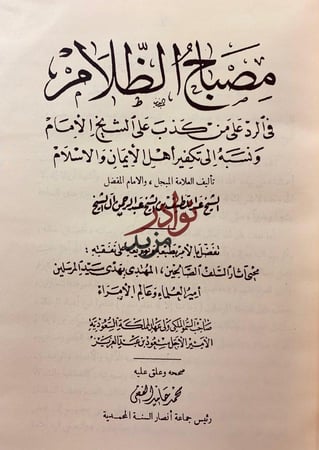 مصباح الظلام
في الرد على من كذب على الشيخ الإمام
ونسبه إلى تكفير أهل الإيمان والإسلام
تأليف العلامة المبجل، والإمام المفضل
الشيخ عبد اللطيف بن الشيخ عبد الرحمن آل الشيخ
نوادر
مزيد
تفضل بالأمر بطبعه على نفقته:
محيي آثار السلف الصالحين، المهتدي بهدي سيد المرسلين
أمير العلماء وعالم الأمراء
صاحب السمو الملكي ولي عهد المملكة السعودية
الأمير الأجل سعود بن عبد العزيز
صححه وعلق عليه
محمد حامد الفقي
رئيس جماعة أنصار السنة المحمدية